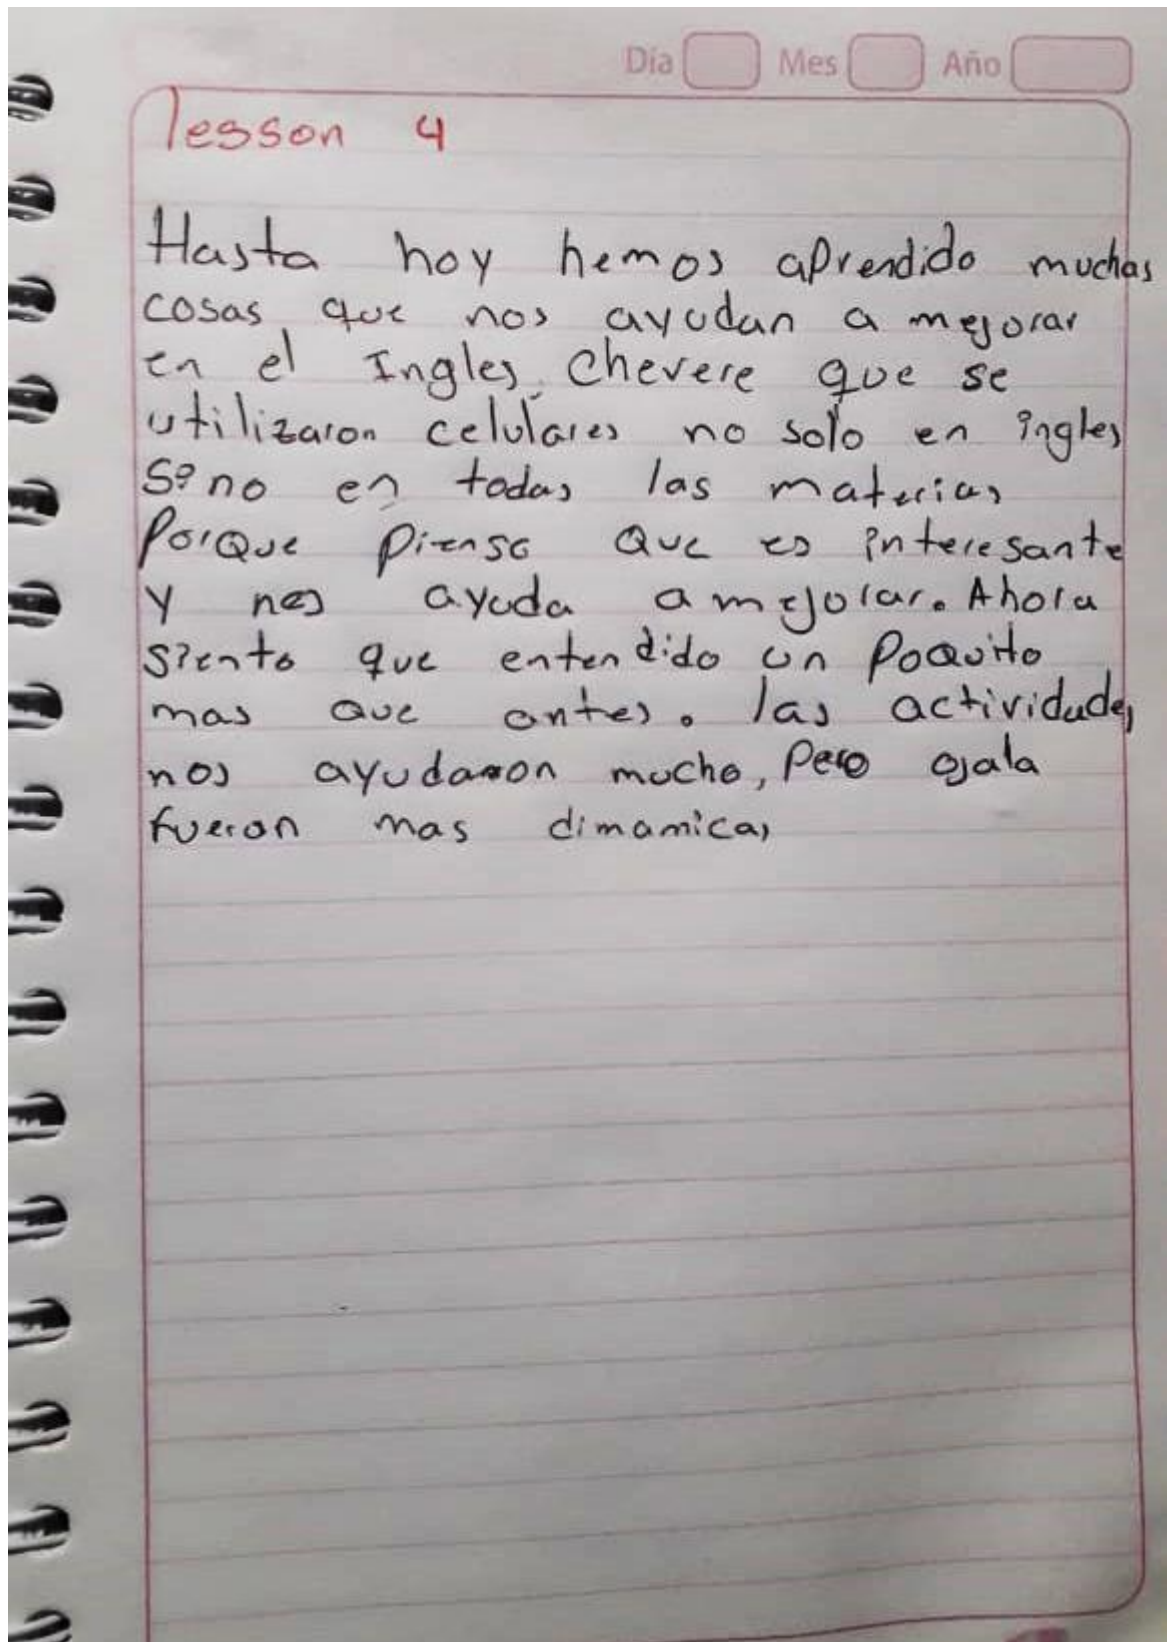 Día Mes Año
lesson 4
Hasta hoy hemos aprendido muchas
cosas que nos ayudan a mejorar
en el Ingles, chevere que se
utilizaron celulares no solo en ingles
sino en todas las materias
Porque pienso que es interesante
y nos ayuda a mejorar. Ahora
siento que entendido un poquito
mas que antes. las actividades
nos ayudaron mucho, pero ojala
fueran mas dimamicas